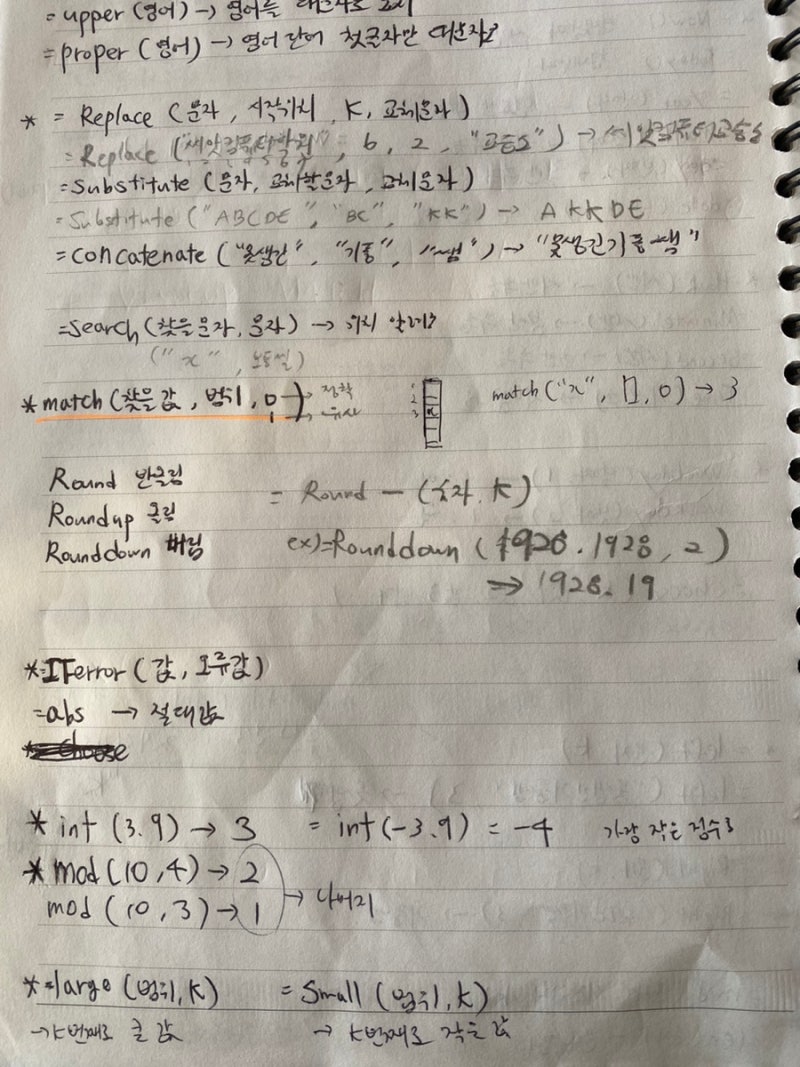 = upper (영어) → 영어를 대문자로 표시
= proper (영어) → 영어 단어 첫글자만 대문자로
* = Replace (문자, 시작위치, K, 교체문자)
= Replace ( , 6, 2, "고등소") →
= Substitute (문자, 교체할문자, 교체문자)
= Substitute ("ABCDE", "BC", "KK") → AKKDE
= concatenate ("못생긴", "기중", "쌤") → "못생긴기중쌤"
= search (찾을문자, 문자) → 위치 알려줌
("x", )
* match (찾을값, 범위, 0) → 정확
1 → 유사
1
2
3 x
match ("x", [], 0) → 3
Round 반올림
Roundup 올림
Rounddown 버림
= Round – (숫자, K)
ex) = Rounddown (1928.1928, 2)
→ 1928.19
* = IFerror (값, 오류값)
= abs → 절대값
* = choose
* int (3.9) → 3 = int(-3.9) = -4 가장 작은 정수로
* mod (10, 4) → 2
mod (10, 3) → 1 → 나머지
* = large (범위, K) = Small (범위, K)
→ K번째로 큰 값 → K번째로 작은 값